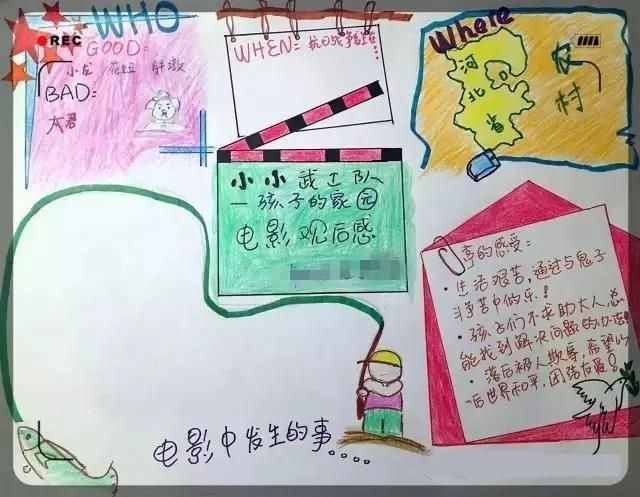 REC
WHO
GOOD:
小龙 花妞 胖墩
BAD:
WHEN:
Where
河
北
省
农
村
小小武工队
一孩子的家园
电影观后感
的感受:
·生活艰苦,通过与鬼子
斗争苦中作乐!
·孩子们不求助大人总
能找到解决问题的办法!
·落后被人欺辱,希望以
后世界和平,团结友爱!
电影中发生的事....